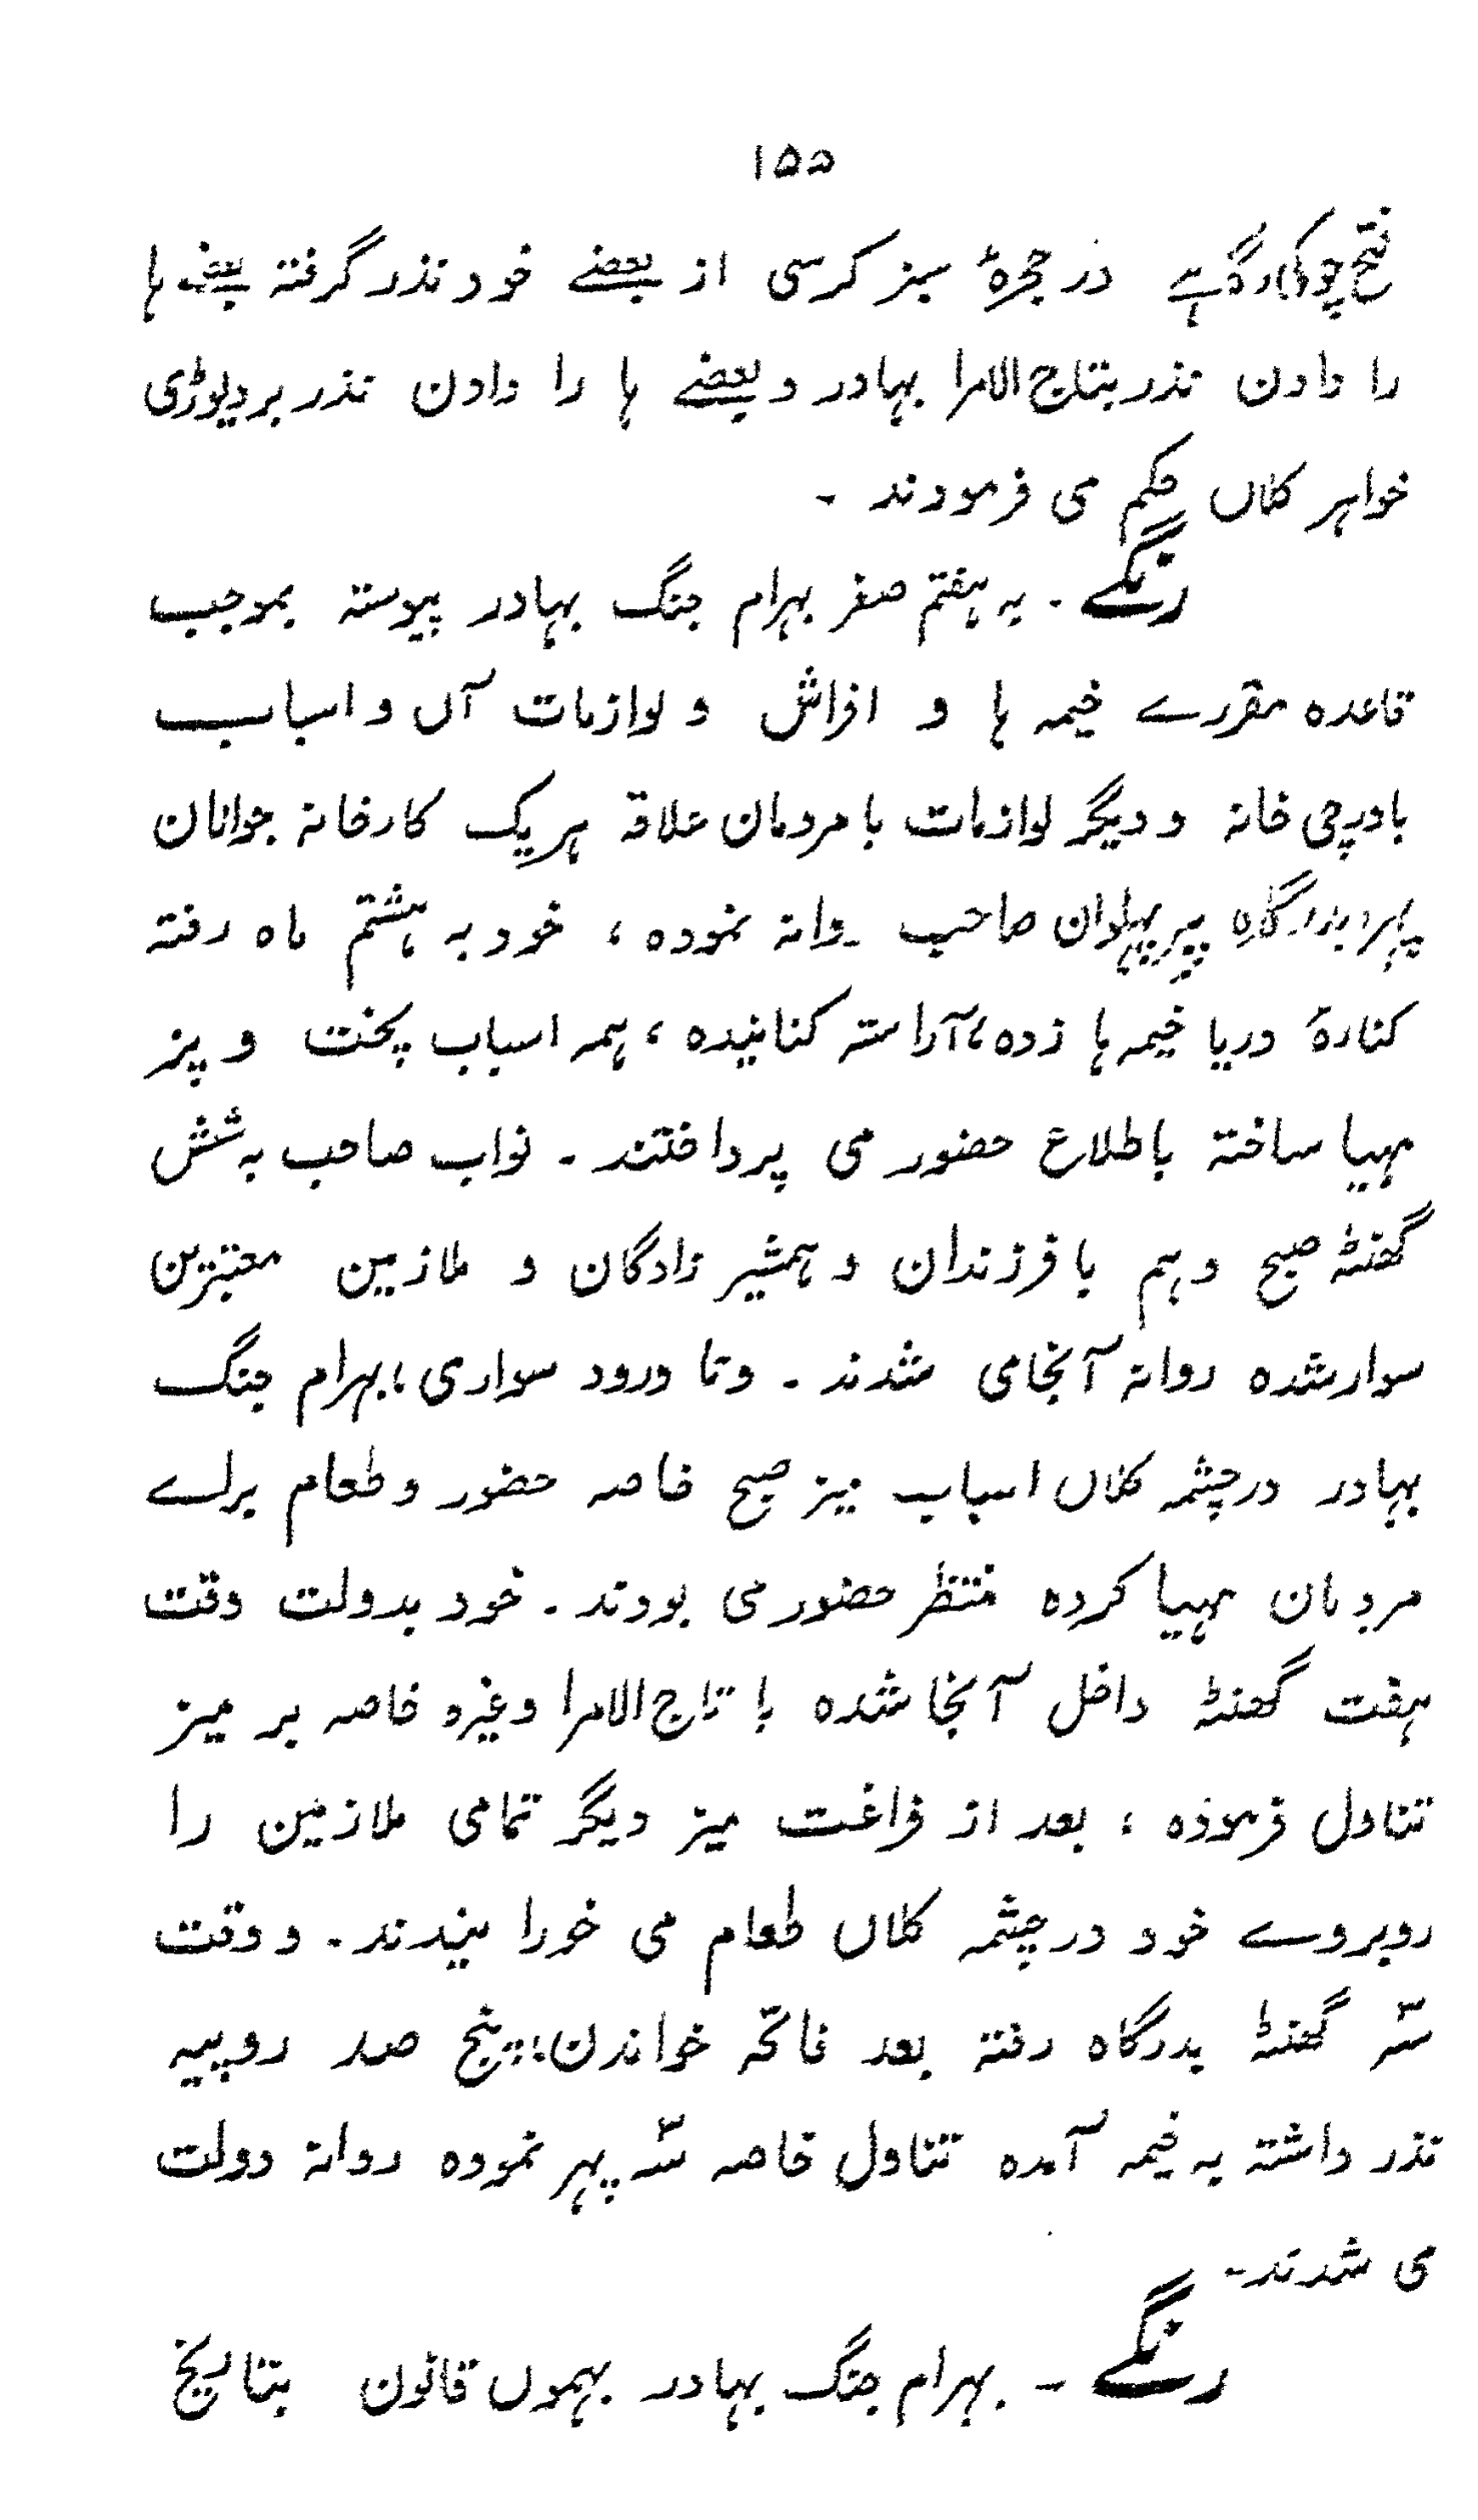 ۱۵۵
فتح چوکی و گاہے در حجرۂ میز کرسی از بعضے خود نذر گرفتہ بعضے ہا
را دادن نذر بتاج الامرا بہادر و بعضے ہا را دادن نذر بر دیوڑی
خواہر کلاں حکم می فرمودند ۔
رنگے ۔ بہ ہفتم صفر بہرام جنگ بہادر پیوستہ بموجب
قاعدہ مقررے خیمہ ہا و افراش و لوازمات آں و اسباب
باورچی خانہ و دیگر لوازمات با مردمان علاقہ ہر یک کارخانہ جوانان
پہرا بدرگاہِ پیر پہلوان صاحب روانہ نمودہ ، خود بہ ہشتم ماہ رفتہ
کنارۂ دریا خیمہ ہا زدہ ، آراستہ کنانیدہ ، ہمہ اسباب پخت و پز
مہیا ساختہ باطلاع حضور می پرداختند ۔ نواب صاحب بہ شش
گھنٹہ صبح دہم با فرزندان و ہمشیر زادگان و ملازمین معتبرین
سوار شدہ روانہ آنجا می شدند ۔ و تا ورود سواری ، بہرام جنگ
بہادر در چشمہ کلاں اسباب میز صبح خاصہ حضور و طعام برائے
مردمان مہیا کردہ منتظر حضور می بودند ۔ خود بدولت وقت
ہفت گھنٹہ داخل آنجا شدہ با تاج الامرا وغیرہ خاصہ بر میز
تناول فرمودہ ، بعد از فراغت میز دیگر تمامی ملازمین را
روبروے خود در چشمہ کلاں طعام می خورانیدند ۔ و وقت
سہ گھنٹہ بدرگاہ رفتہ بعد فاتحہ خواندن ، پنج صد روپیہ
نذر داشتہ بہ خیمہ آمدہ تناول خاصہ سہ پہر نمودہ روانہ دولت
می شدند ۔
رنگے ۔ بہرام جنگ بہادر بہموں قانون بتاریخ